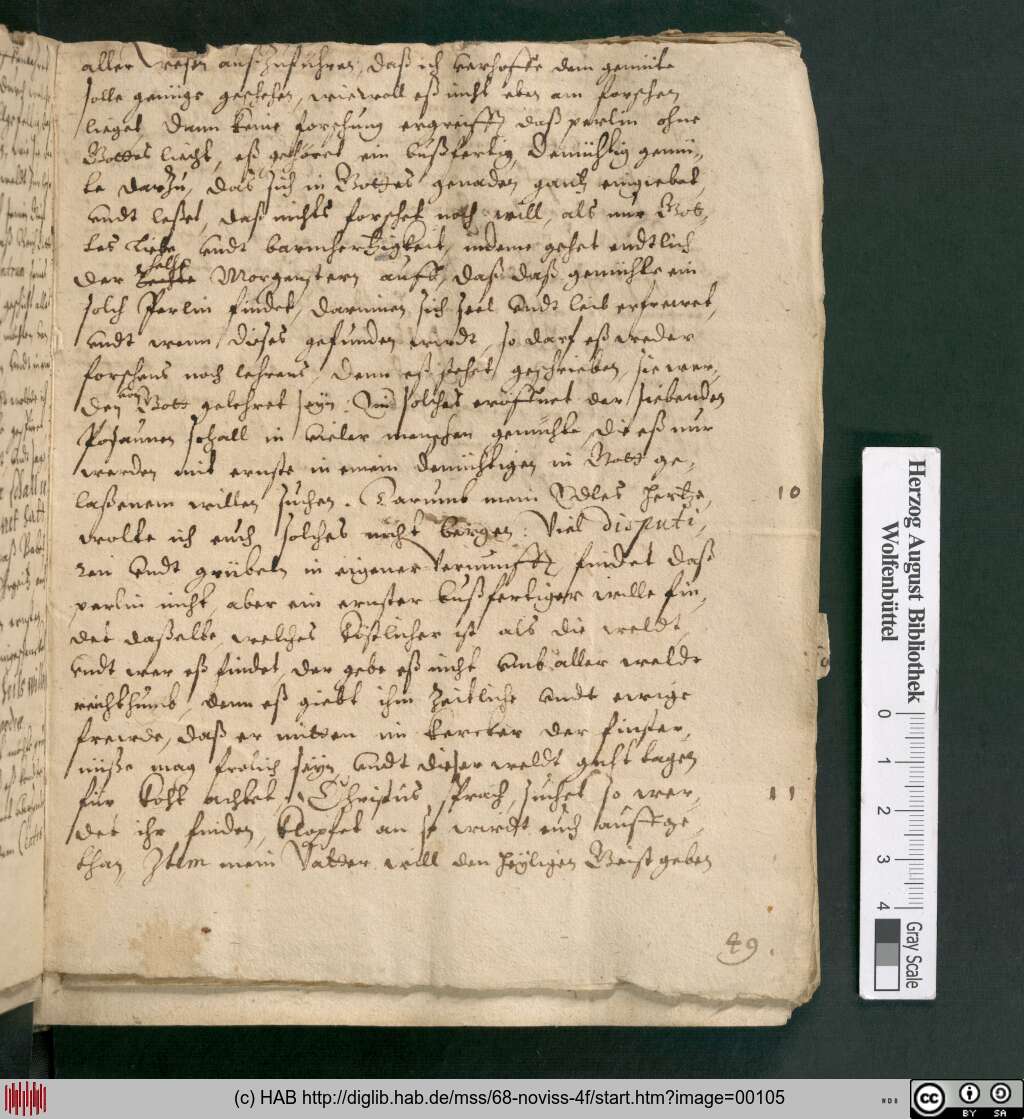 aller wesen außzuführen, daß ich verhoffe dem gemüte
solle genüge geschehen, wiewoll eß nicht eben am forschen
lieget, Dann keine forschung ergreifft daß perlin ohne
Gottes liecht, eß gehöret ein bußfertig, Demühtig gemü-
te darzu, das sich in Gottes genaden gantz eingiebet,
undt leßet, daß nichts forschet noch will, als nur Got-
tes Liebe undt barmhertzigkeit, indeme gehet endtlich
der helle Morgenstern auff, daß daß gemühte ein
solch Perlin findet, darinnen sich seel undt leib erfrewet,
undt wenn dieses gefunden wirdt, so darf eß weder
forschens noch lehrens, denn eß stehet geschrieben, sie wer-
den von Gott gelehret seyn. Und solches eröffnet der siebenden
Posaunen schall in vieler menschen gemühte, die eß nur
werden mit ernste in einem demühtigen in Gott ge-
laßenem willen suchen. Darumb mein Edles hertze,
10
wolte ich euch solches nicht bergen: Viel disputi-
ren undt grübeln in eigener Vernunfft findet daß
perlin nicht, aber ein ernster bußfertiger wille fin-
det daßelbe, welches köstlicher ist als die weldt,
undt wer eß findet, der gebe eß nicht umb aller weldt
reichthumb, denn eß giebt ihm zeitliche undt ewige
frewde, daß er mitten im kercker der finster-
nüße mag frölich seyn, undt dieser weldt guht
für koht achtet. Christus sprach, suchet so wer-
11
det ihr finden, klopfet an so wirdt euch auffge-
than, Item mein Vatter will den heyligen Geist geben
49.
Herzog August Bibliothek
Wolfenbüttel
0 1 2 3 4
Gray Scale
(c) HAB http://diglib.hab.de/mss/68-noviss-4f/start.htm?image=00105
cc BY SA